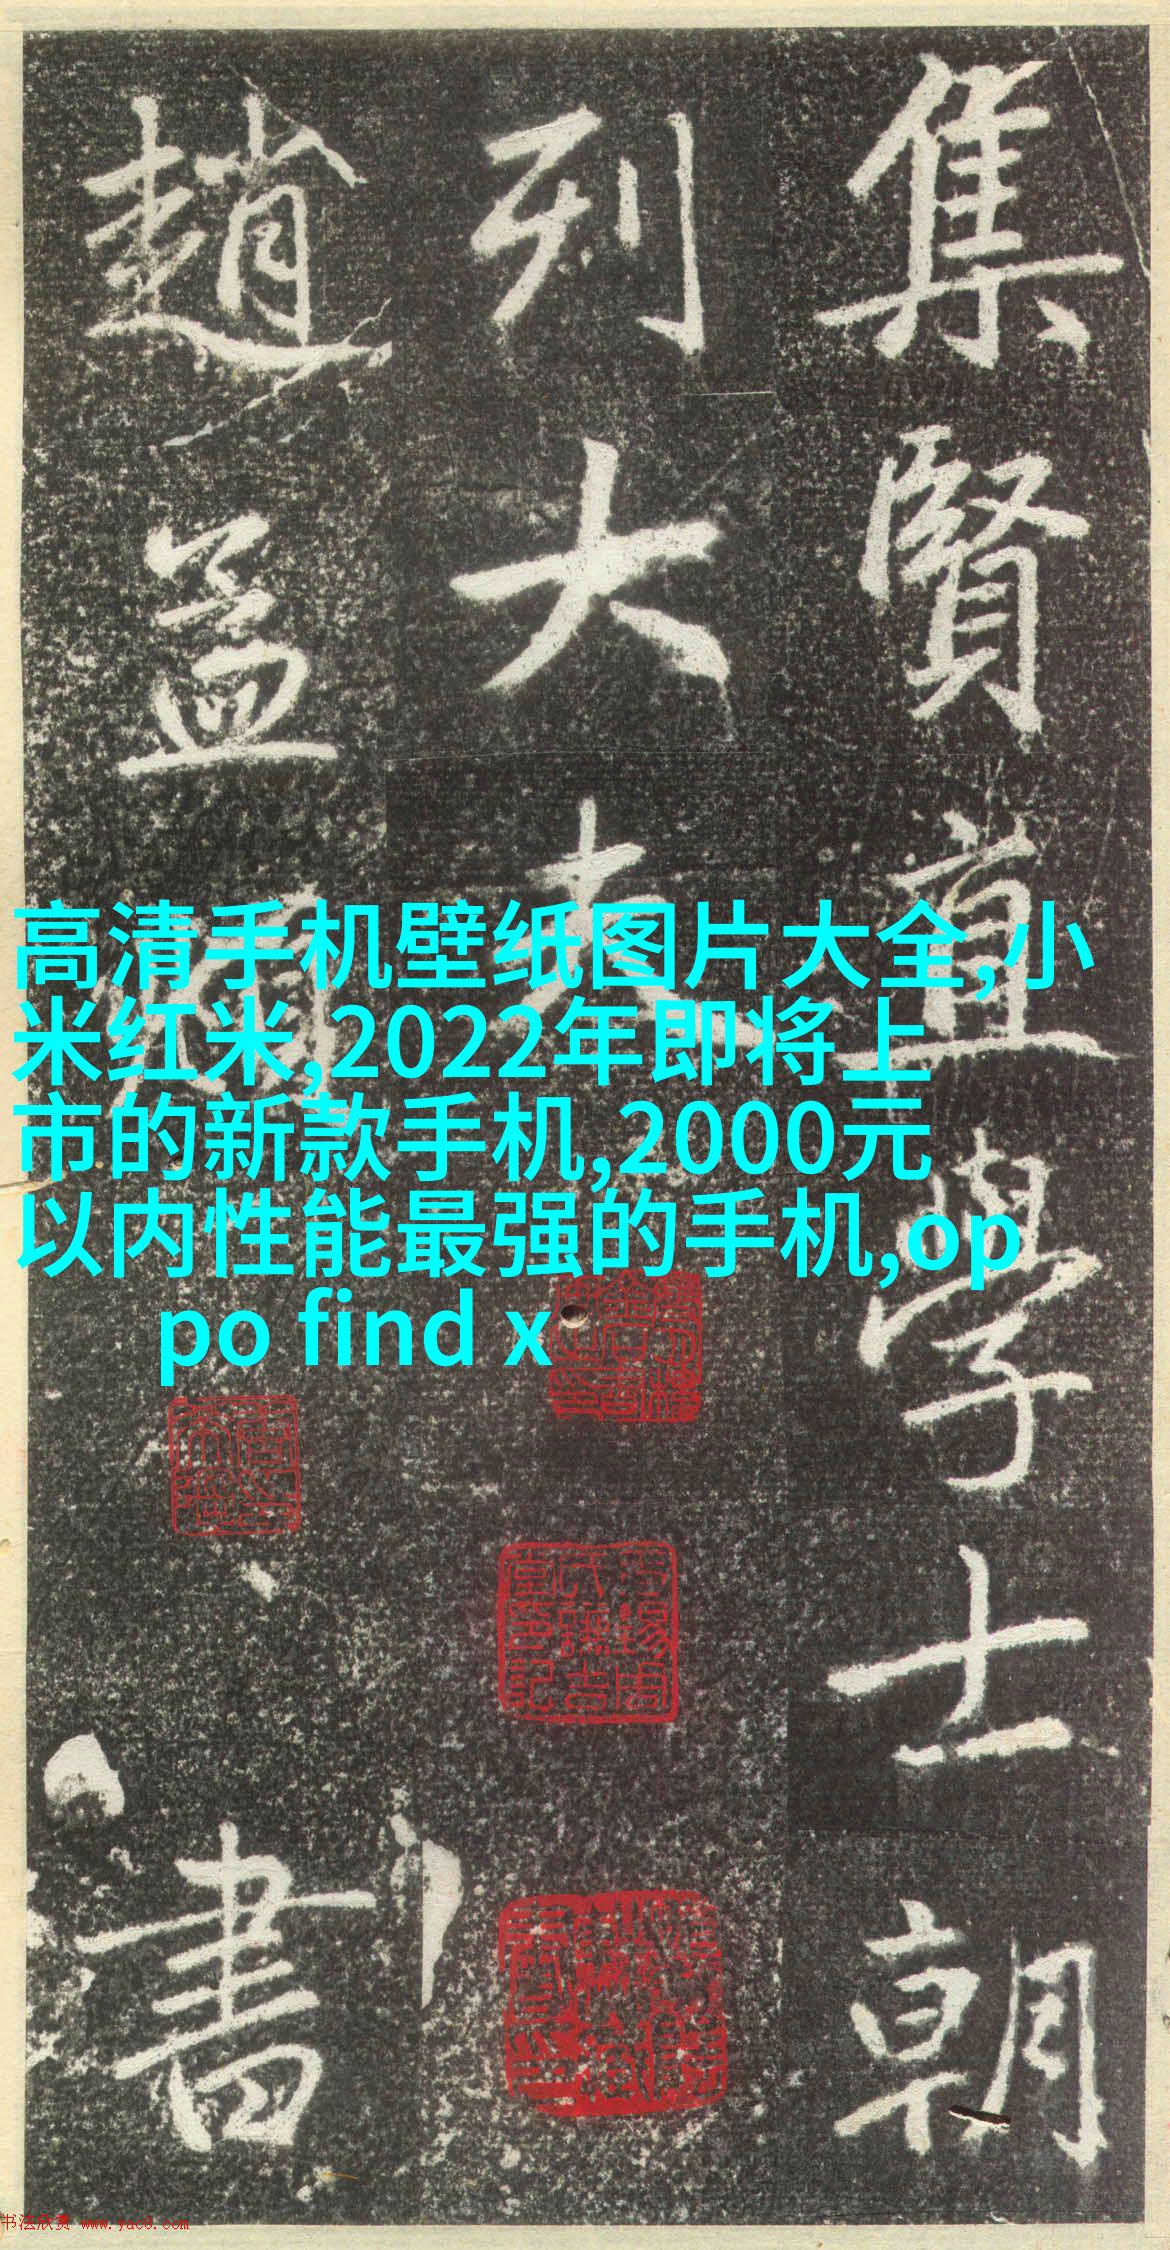 集賢直學士朝
列大夫
趙孟頫
書
高清手机壁纸图片大全,小
米红米,2022年即将上
市的新款手机,2000元
以内性能最强的手机,op
po find x
书法欣赏 www.yac8.com